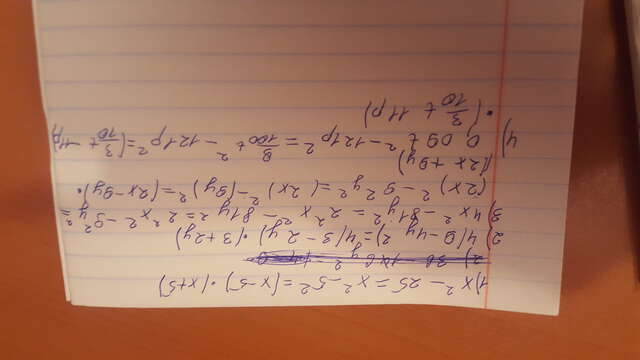 1) x² - 25 = x² - 5² = (x - 5) · (x + 5)
2) 4(9 - 4y²) = 4(3 - 2y) · (3 + 2y)
3) 4x² - 81y² = 2²x² - 81y² = 2²x² - 9²y² =
(2x)² - 9²y² = (2x)² - (9y)² = (2x - 9y) ·
(2x + 9y)
4) 0,09t² - 121p² = 9/100 t² - 121p² = (3/10 t - 11p)
· (3/10 t 11p)